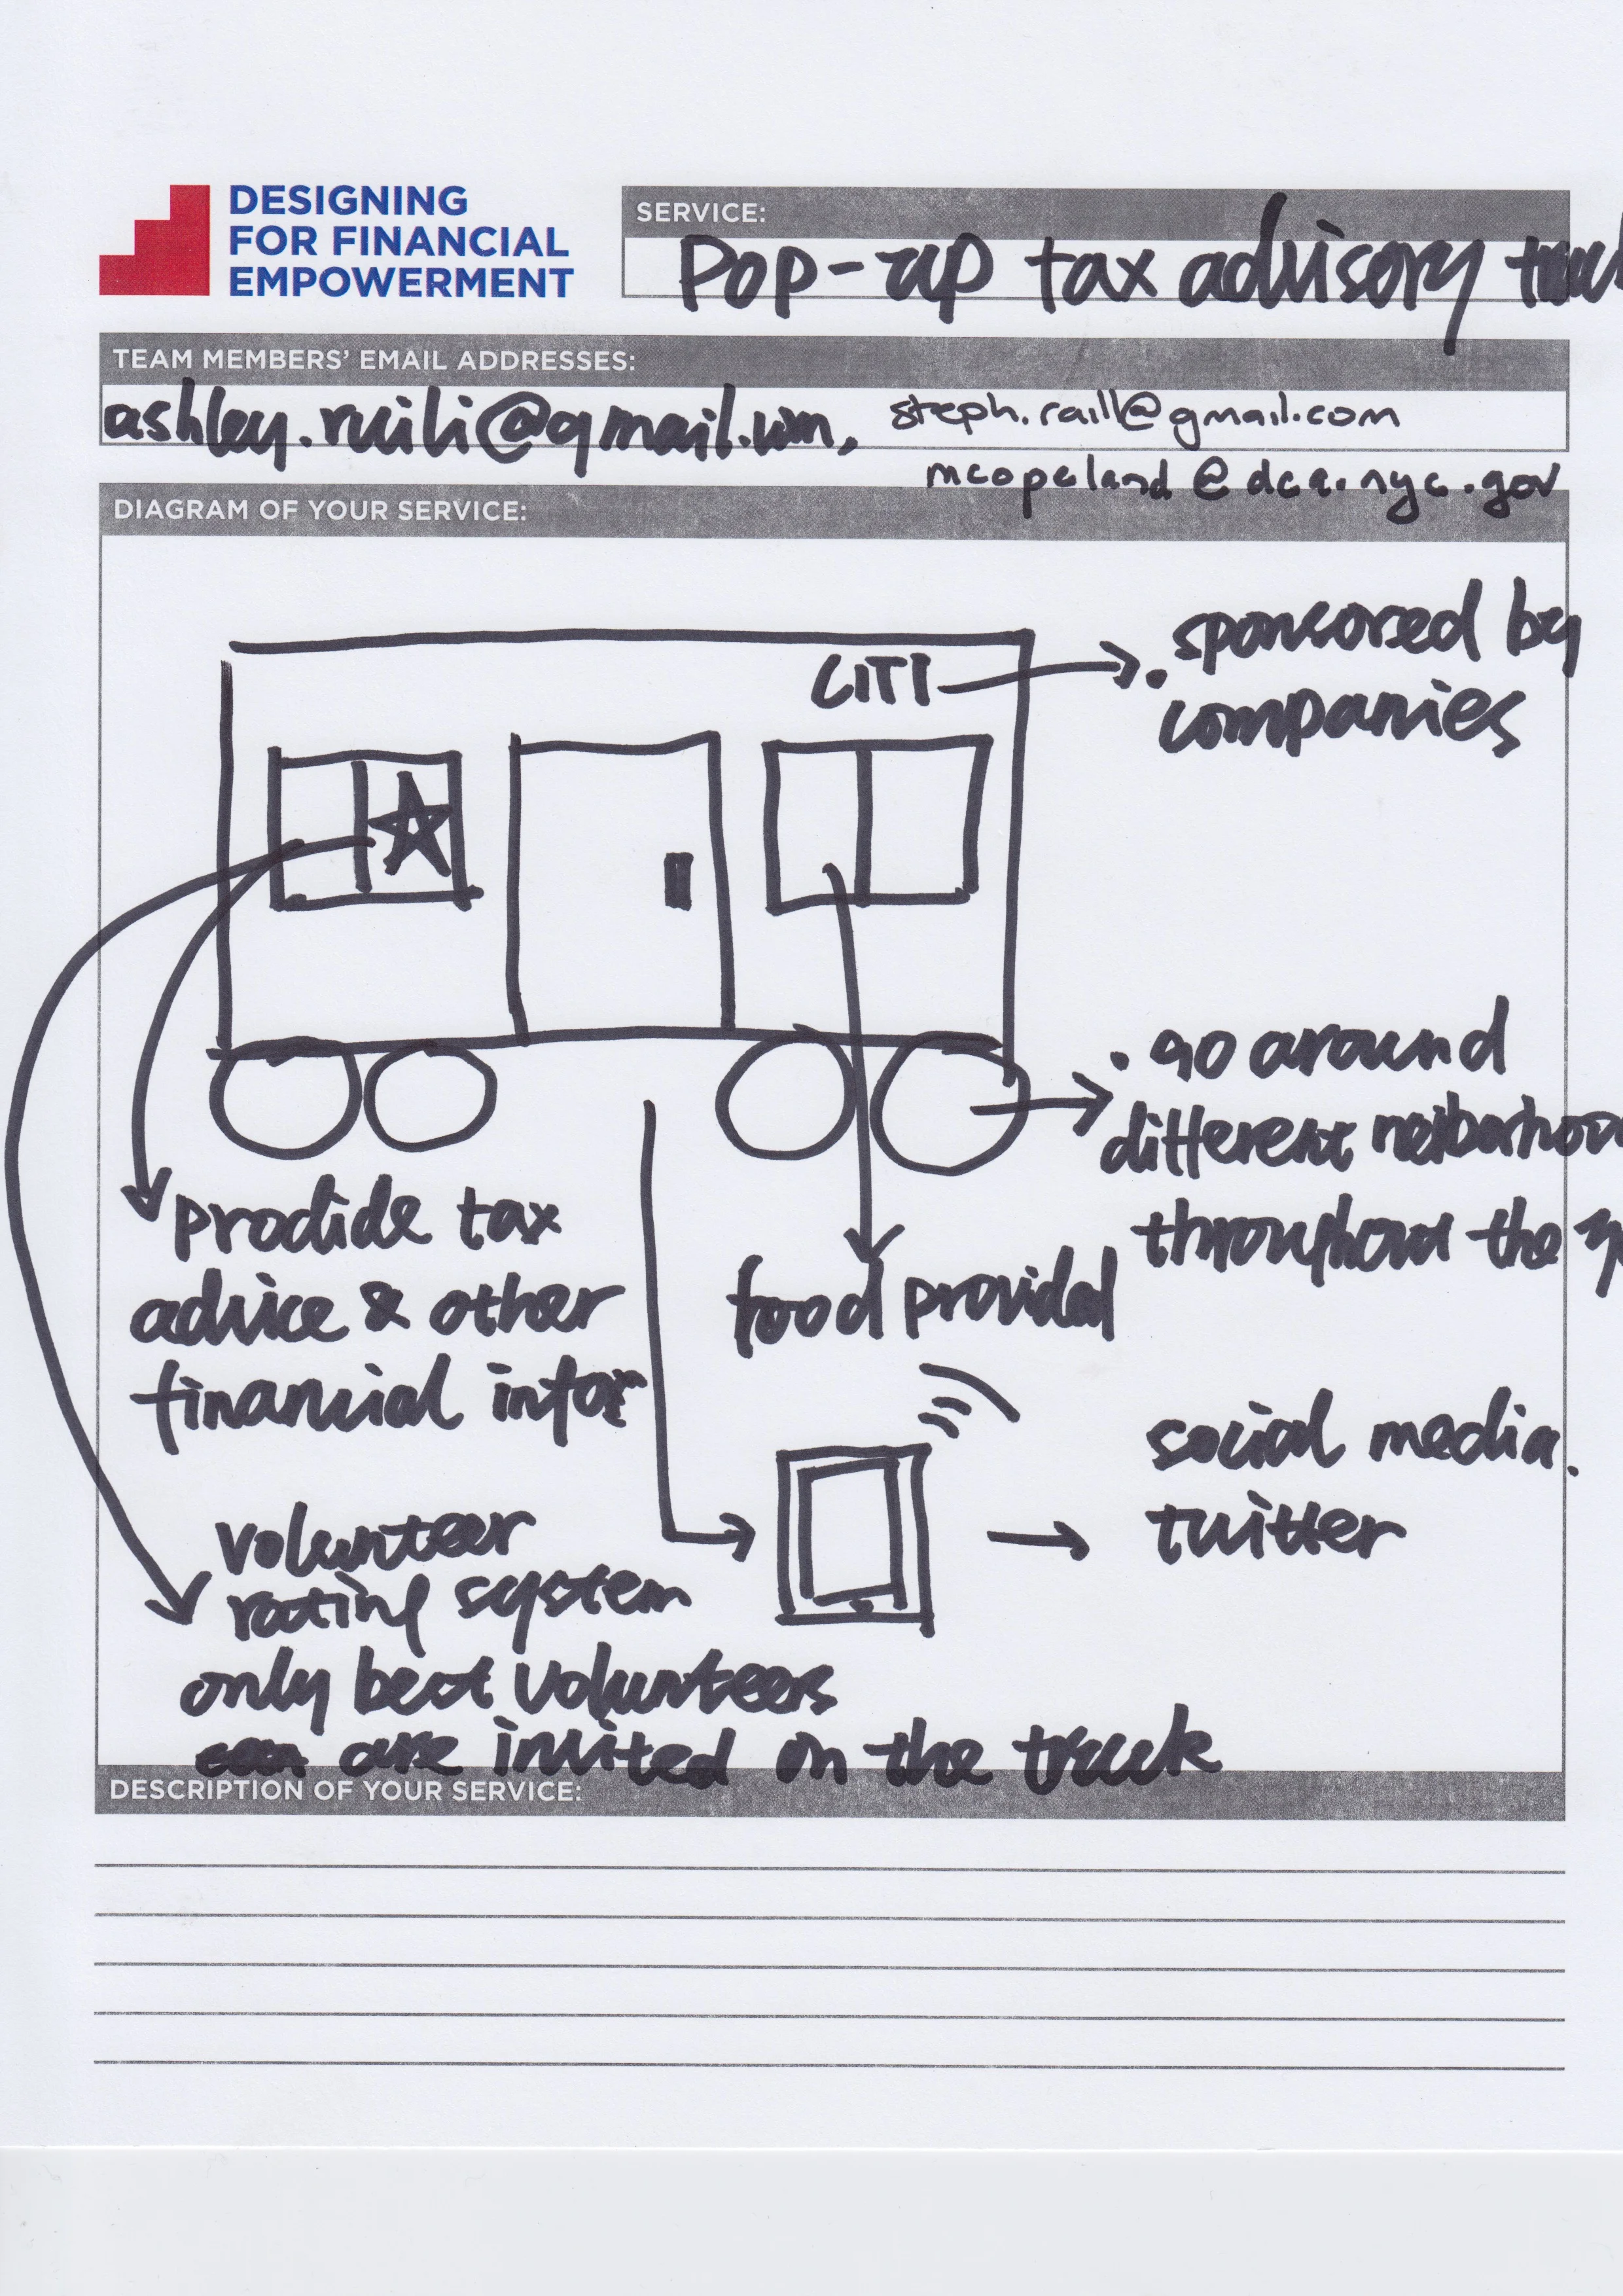 DESIGNING
FOR FINANCIAL
EMPOWERMENT
SERVICE:
Pop-up tax advisory
TEAM MEMBERS' EMAIL ADDRESSES:
ashley.ruili@gmail.com, steph.raill@gmail.com
mcopeland@dca.nyc.gov
DIAGRAM OF YOUR SERVICE:
CITI
. sponsored by
companies
. go around
different
throughout the
prodide tax
advice & other
financial infor
food provided
social media.
twitter
volunteer
rating system
only best volunteers
are invited on the truck
DESCRIPTION OF YOUR SERVICE: